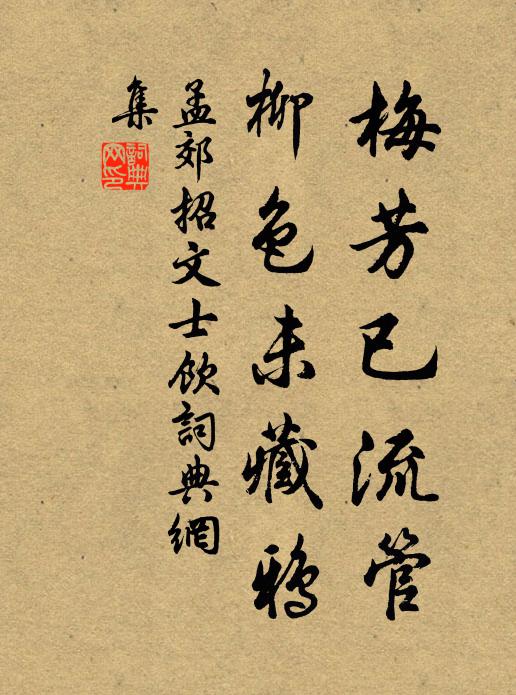 梅芳已流管
柳色未藏鴉
孟郊招文士飲詞典網
集
詞典
网印